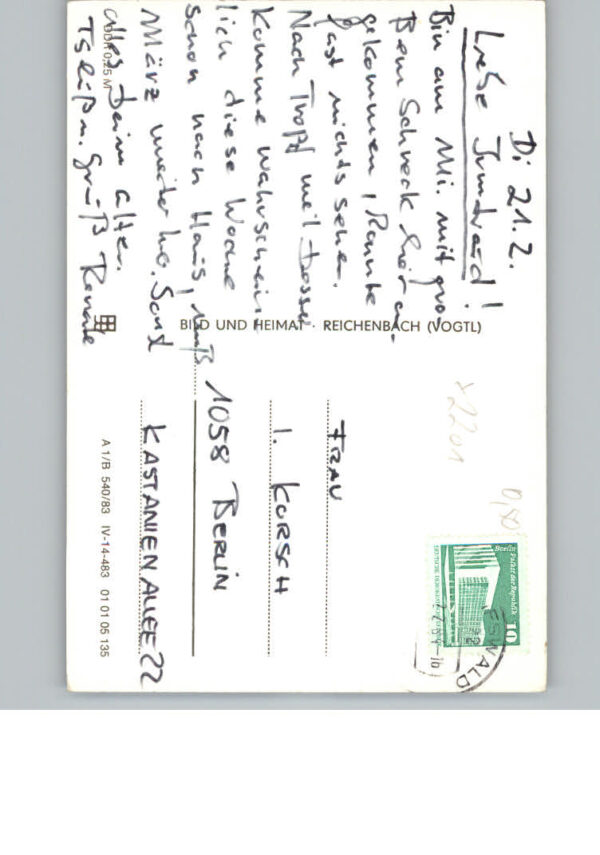 Di 21.2.
Liebe Irmtraud!
Bin am Mi. mit gro-
ßem Schreck hier an-
gekommen, konnte
fast nichts sehen.
Nach Tropf weil besser
Komme wahrschein-
lich diese Woche
schon nach Haus, muß
März wieder her. Sonst
alles beim alten.
Tschüß u. Gruß Renate
EVP 0,25 M
BILD UND HEIMAT · REICHENBACH (VOGTL)
A 1/B 540/83 IV-14-483 01 01 05 135
FRAU
I. KORSCH
1058 BERLIN
KASTANIENALLEE 22
x2201
0,50
Berlin, Palast der Republik
10
ESWALD
22